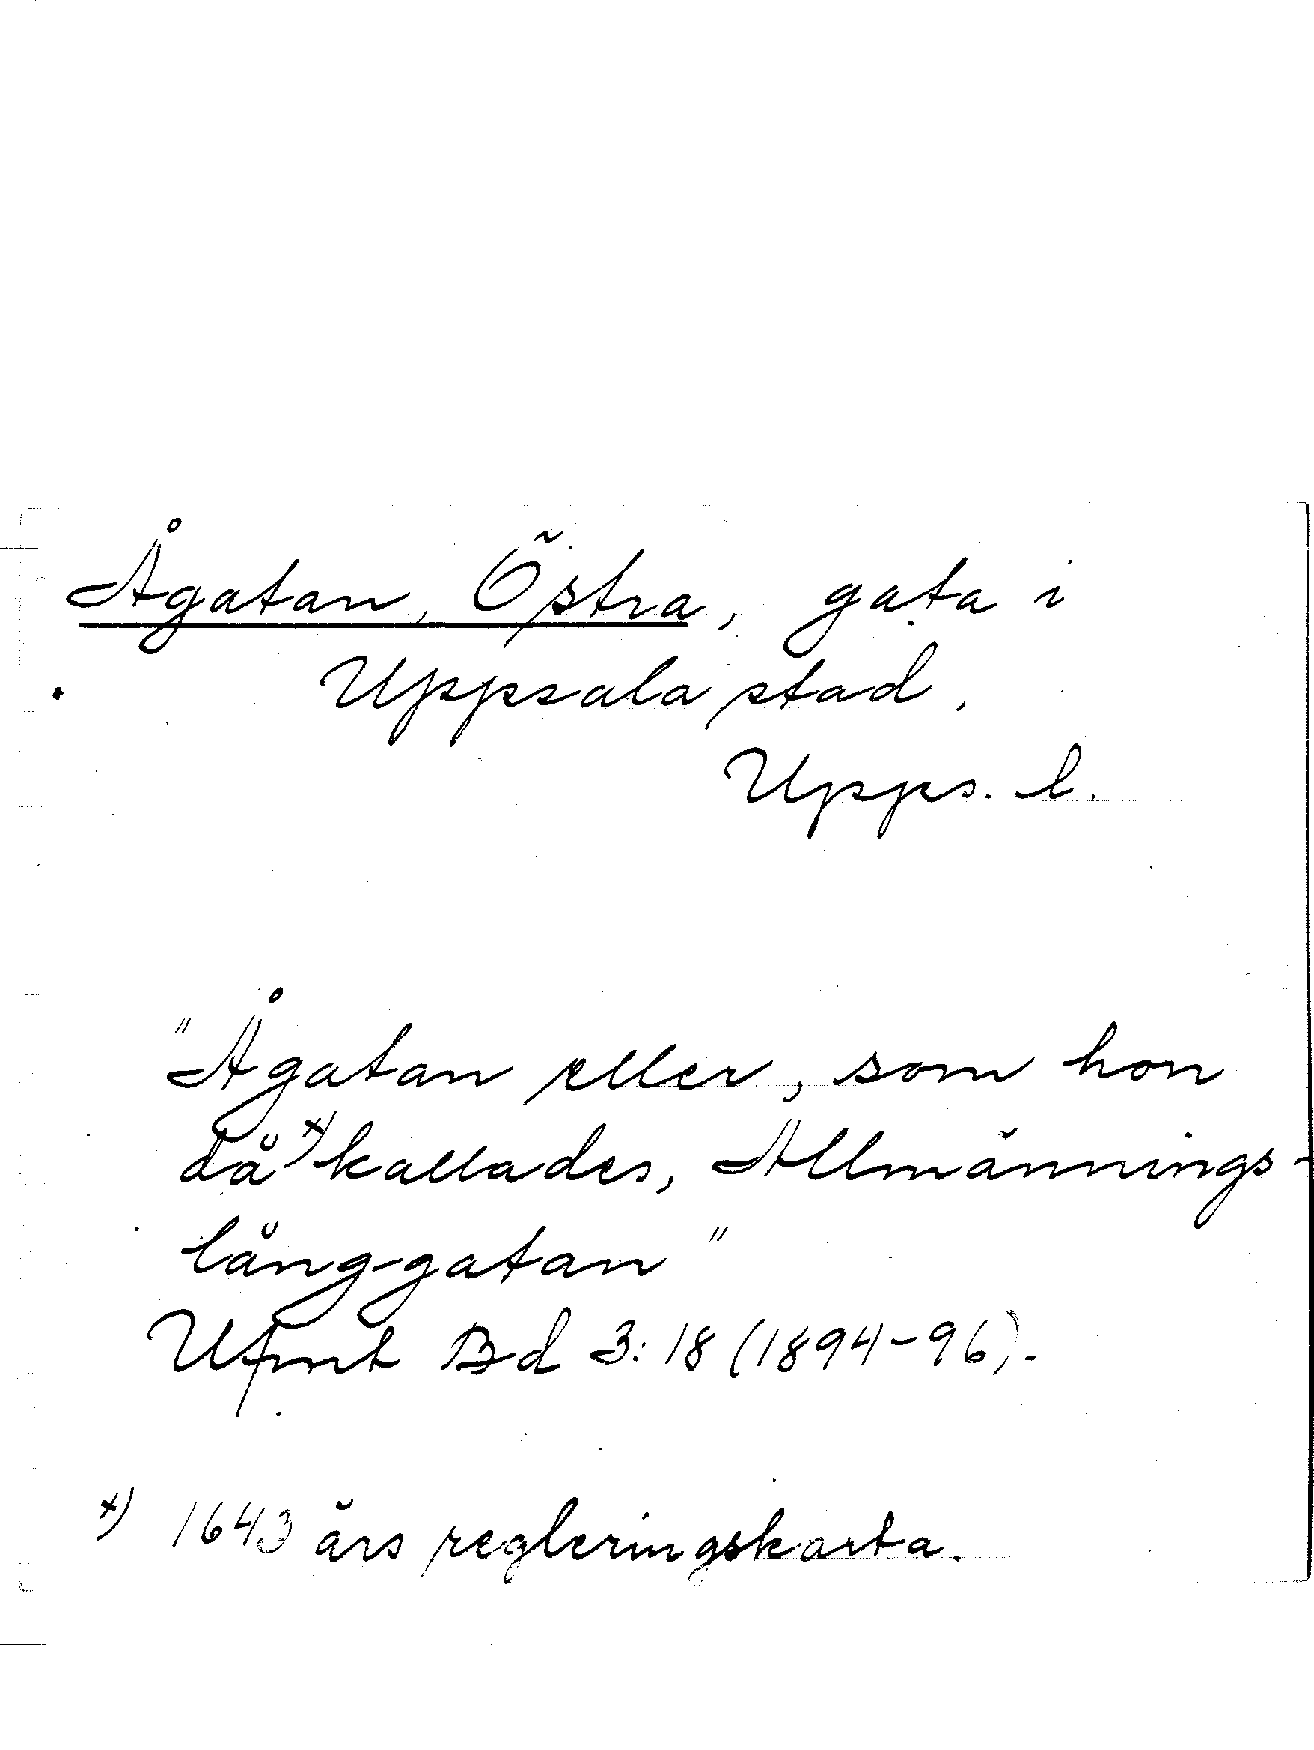 Ågatan, Östra, gata i
Uppsala stad.
Upps. l.
"Ågatan eller, som hon
då x) kallades, Allmännings-
långgatan"
Ufmt Bd 3:18 (1894-96).
x) 1643 års regleringskarta.